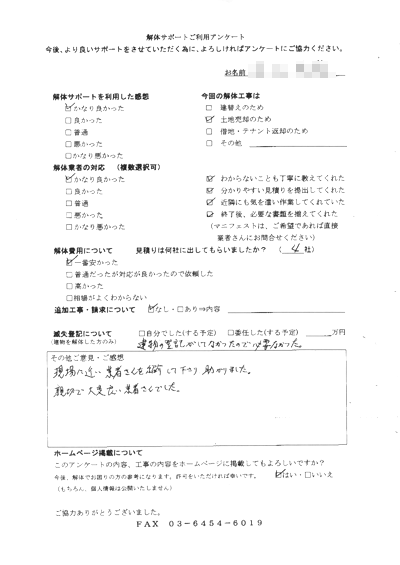 解体サポートご利用アンケート
今後、より良いサポートをさせていただく為に、よろしければアンケートにご協力ください。
お名前
解体サポートを利用した感想
☑かなり良かった
□良かった
□普通
□悪かった
□かなり悪かった
今回の解体工事は
□ 建替えのため
☑ 土地売却のため
□ 借地・テナント返却のため
□ その他
解体業者の対応 (複数選択可)
☑かなり良かった
□良かった
□普通
□悪かった
□かなり悪かった
☑ わからないことも丁寧に教えてくれた
☑ 分かりやすい見積りを提出してくれた
☑ 近隣にも気を遣い作業してくれていた
☑ 終了後、必要な書類を揃えてくれた
(マニフェストは、ご希望であれば直接
業者さんにお問合せください)
解体費用について 見積りは何社に出してもらいましたか? (4社)
☑一番安かった
□普通だったが対応が良かったので依頼した
□高かった
□相場がよくわからない
追加工事・請求について ☑なし・□あり⇒内容
滅失登記について □自分でした(する予定) □委任した(する予定) 万円
(建物を解体した方のみ) 建物の登記がしてなかったので必要なかった。
その他ご意見・ご感想
現場に近い業者さんを紹介して下さり助かりました。
親切で大変良い業者さんでした。
ホームページ掲載について
このアンケートの内容、工事の内容をホームページに掲載してもよろしいですか?
今後、解体でお困りの方の参考になります。許可をいただければ幸いです。 ☑はい・□いいえ
(もちろん、個人情報は公開いたしません)
ご協力ありがとうございました。
FAX 03-6454-6019